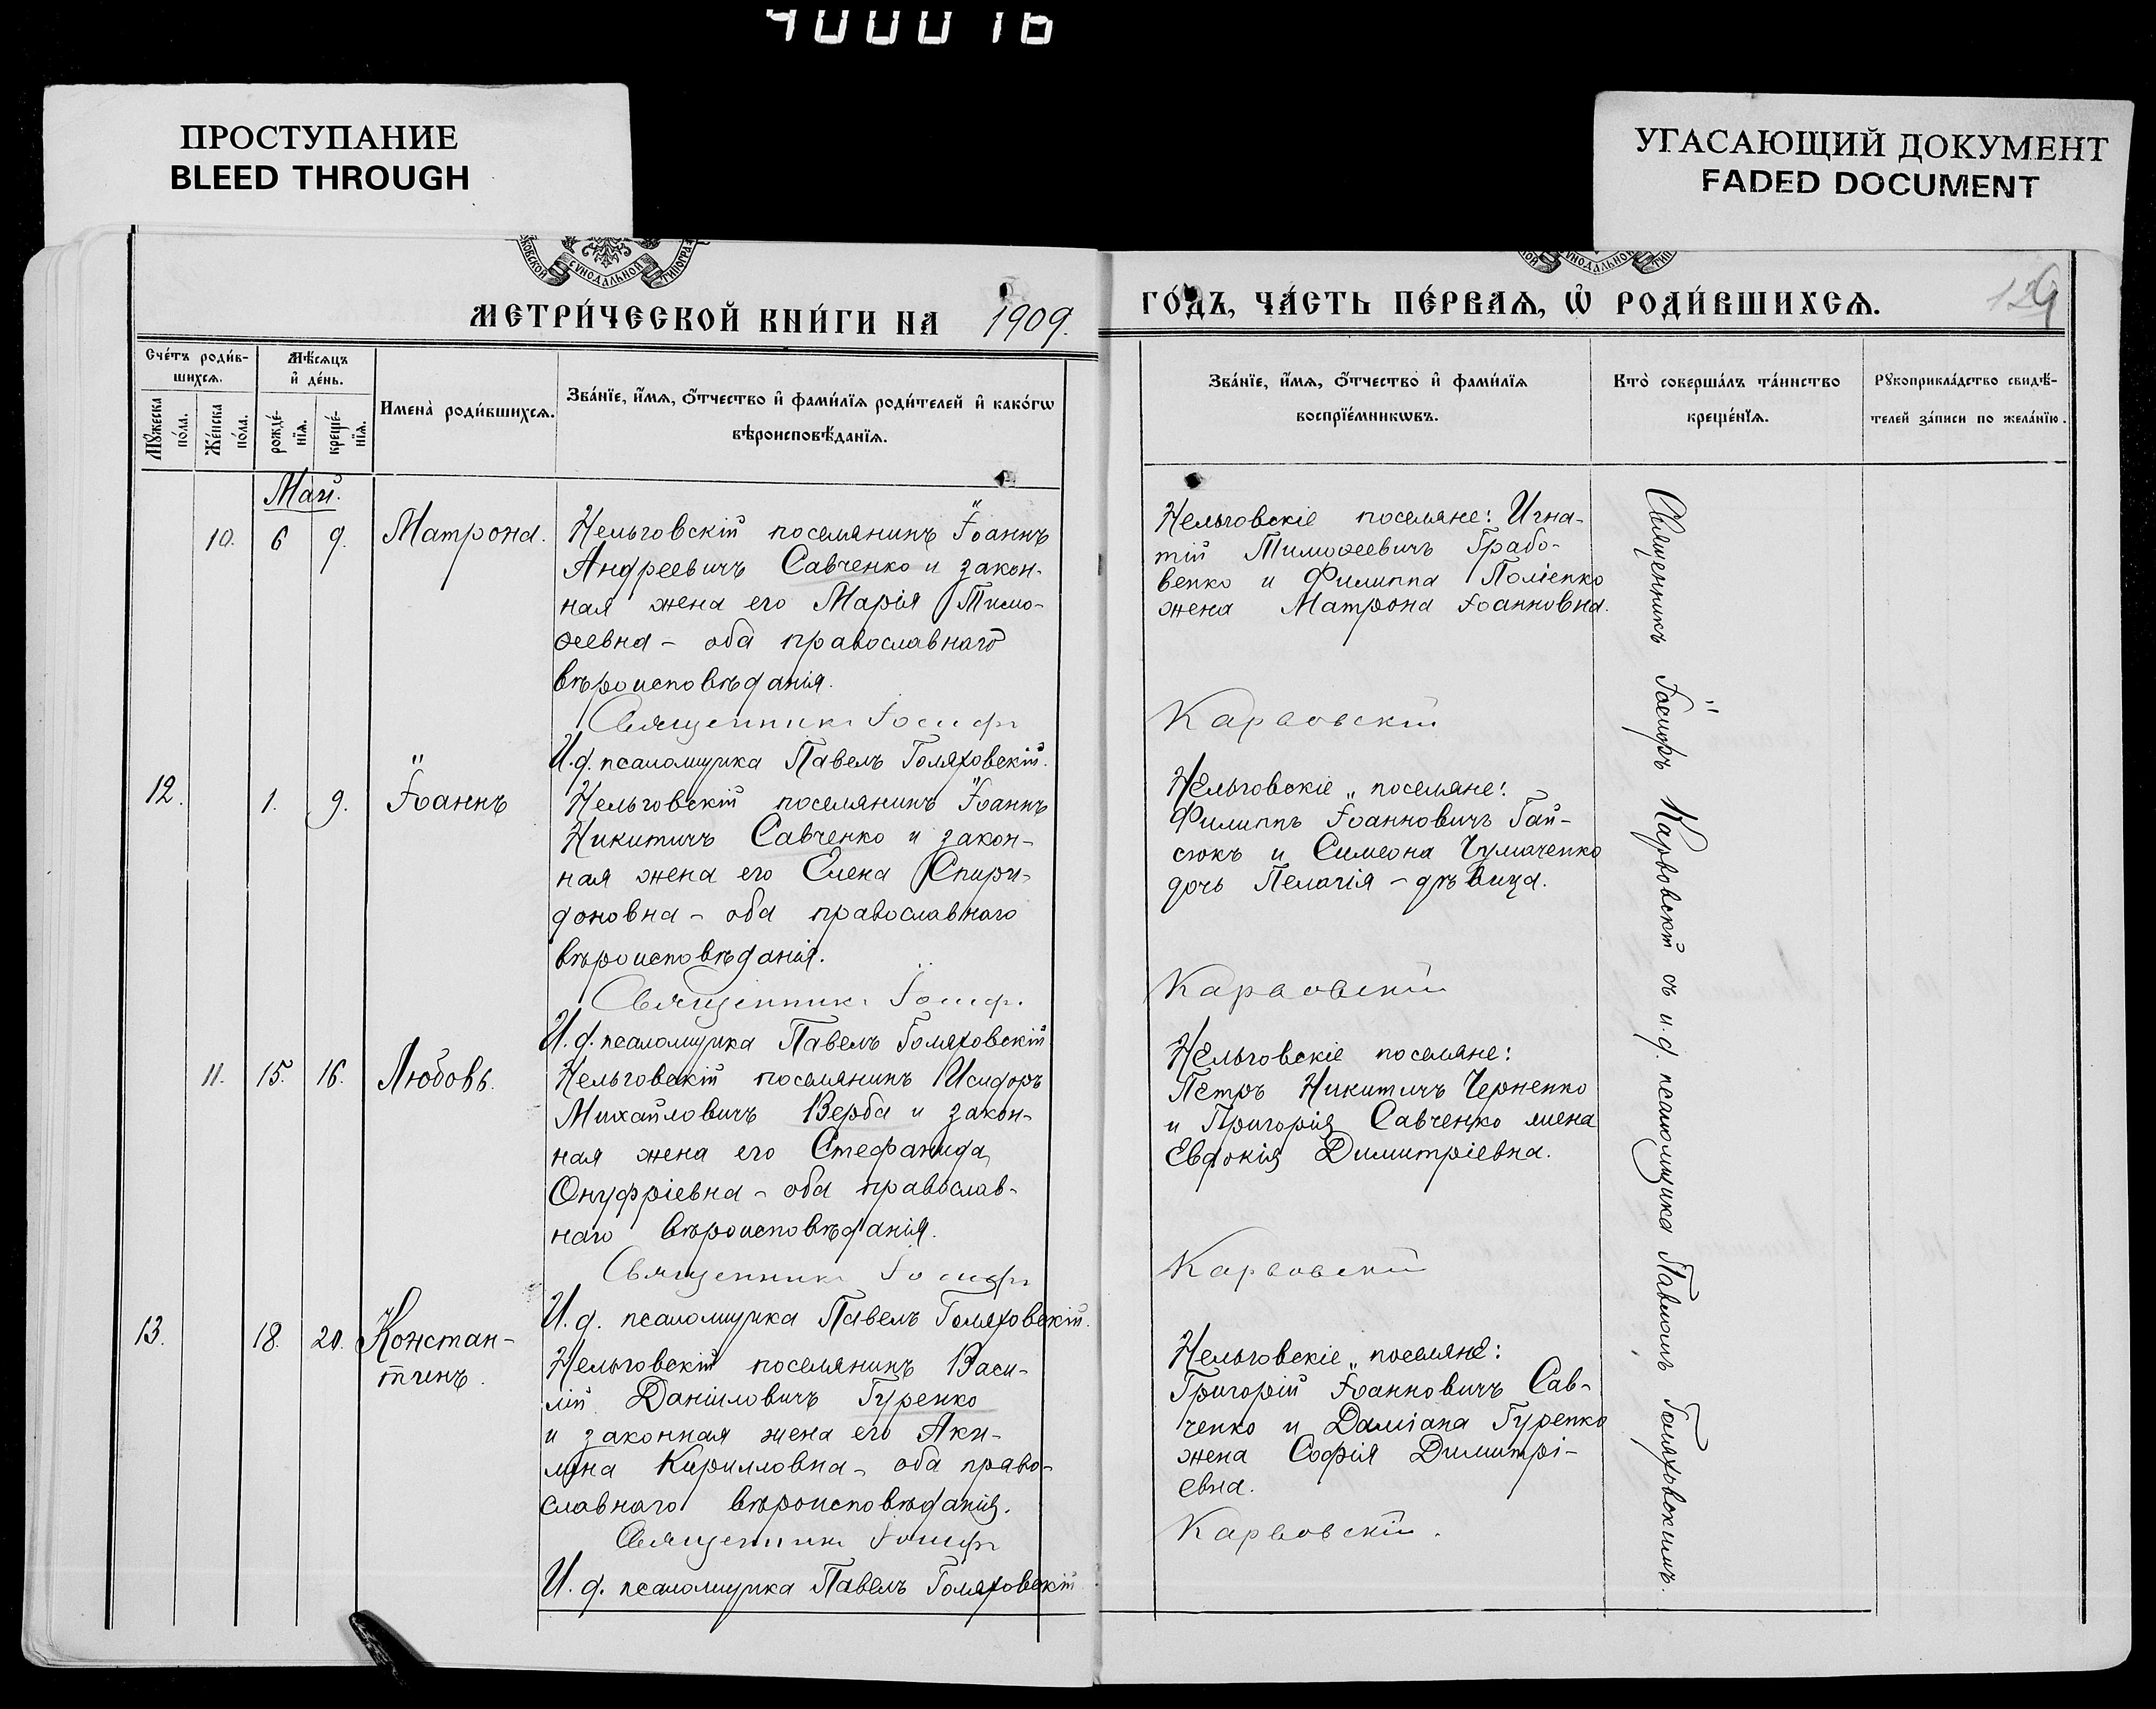 400016
ПРОСТУПАНИЕ
BLEED THROUGH
УГАСАЮЩИЙ ДОКУМЕНТ
FADED DOCUMENT
СѴНОДАЛЬНОЙ
МЕТРИ́ЧЕСКОЙ КНИ́ГИ НА 1909.
ГО́ДЪ, ЧА́СТЬ ПЕ́РВАѦ, Ѡ҆ РОДИ́ВШИХСѦ.
Сче́тъ роди́в-
шихсѧ.
Мꙋ́жеска
по́ла.
Же́нска
по́ла.
Мѣ́сѧцъ
и҆ де́нь.
рожде́-
нїѧ.
креще́-
нїѧ.
Имена̀ роди́вшихсѧ.
Зва́нїе, и҆́мѧ, ѻ҆́тчество и҆ фами́лїѧ роди́телей и҆ како́гѡ
вѣроисповѣ́данїѧ.
Зва́нїе, и҆́мѧ, ѻ҆́тчество и҆ фами́лїѧ
воспрїе́мникѡвъ.
Кто̀ соверша́лъ та́инство
креще́нїѧ.
Рꙋкоприкла́дство свидѣ́-
телей за́писи по жела́нїю.
Май.
10. 6 9. Матрона.
Нельговскій поселянинъ Іоаннъ
Андреевичъ Савченко и закон-
ная жена его Марія Тимо-
ѳеевна – оба православнаго
вѣроисповѣданія.
Священникъ Іосифъ
И. д. псаломщика Павелъ Голяховскій.
Нельговскіе поселяне: Игна-
тій Тимоѳеевичъ Грабо-
венко и Филиппа Поліенко
жена Матрона Іоанновна.
Карвовскій
12. 1. 9. Іоаннъ
Нельговскій поселянинъ Іоаннъ
Никитичъ Савченко и закон-
ная жена его Елена Спири-
доновна – оба православнаго
вѣроисповѣданія.
Священникъ Іосифъ
И. д. псаломщика Павелъ Голяховскій
Нельговскіе поселяне:
Филиппъ Іоанновичъ Гай-
сюкъ и Симеона Чумаченко
дочь Пелагія – дѣвица.
Карвовскій
11. 15. 16. Любовь.
Нельговскій поселянинъ Исидоръ
Михайловичъ Верба и закон-
ная жена его Стефанида
Онуфріевна – оба православ-
наго вѣроисповѣданія.
Священникъ Іосифъ
И. д. псаломщика Павелъ Голяховскій.
Нельговскіе поселяне:
Петръ Никитичъ Черненко
и Григорія Савченко жена
Евдокія Димитріевна.
Карвовскій
13. 18. 20. Констан-
тинъ.
Нельговскій поселянинъ Васи-
лій Даніиловичъ Гуренко
и законная жена его Аки-
лина Кирилловна – оба право-
славнаго вѣроисповѣданія.
Священникъ Іосифъ
И. д. псаломщика Павелъ Голяховскій
Нельговскіе поселяне:
Григорій Іоанновичъ Сав-
ченко и Даміана Гуренко
жена Софія Димитрі-
евна.
Карвовскій.
Священникъ Іосифъ Карвовскій съ и. д. псаломщика Павломъ Голяховскимъ.